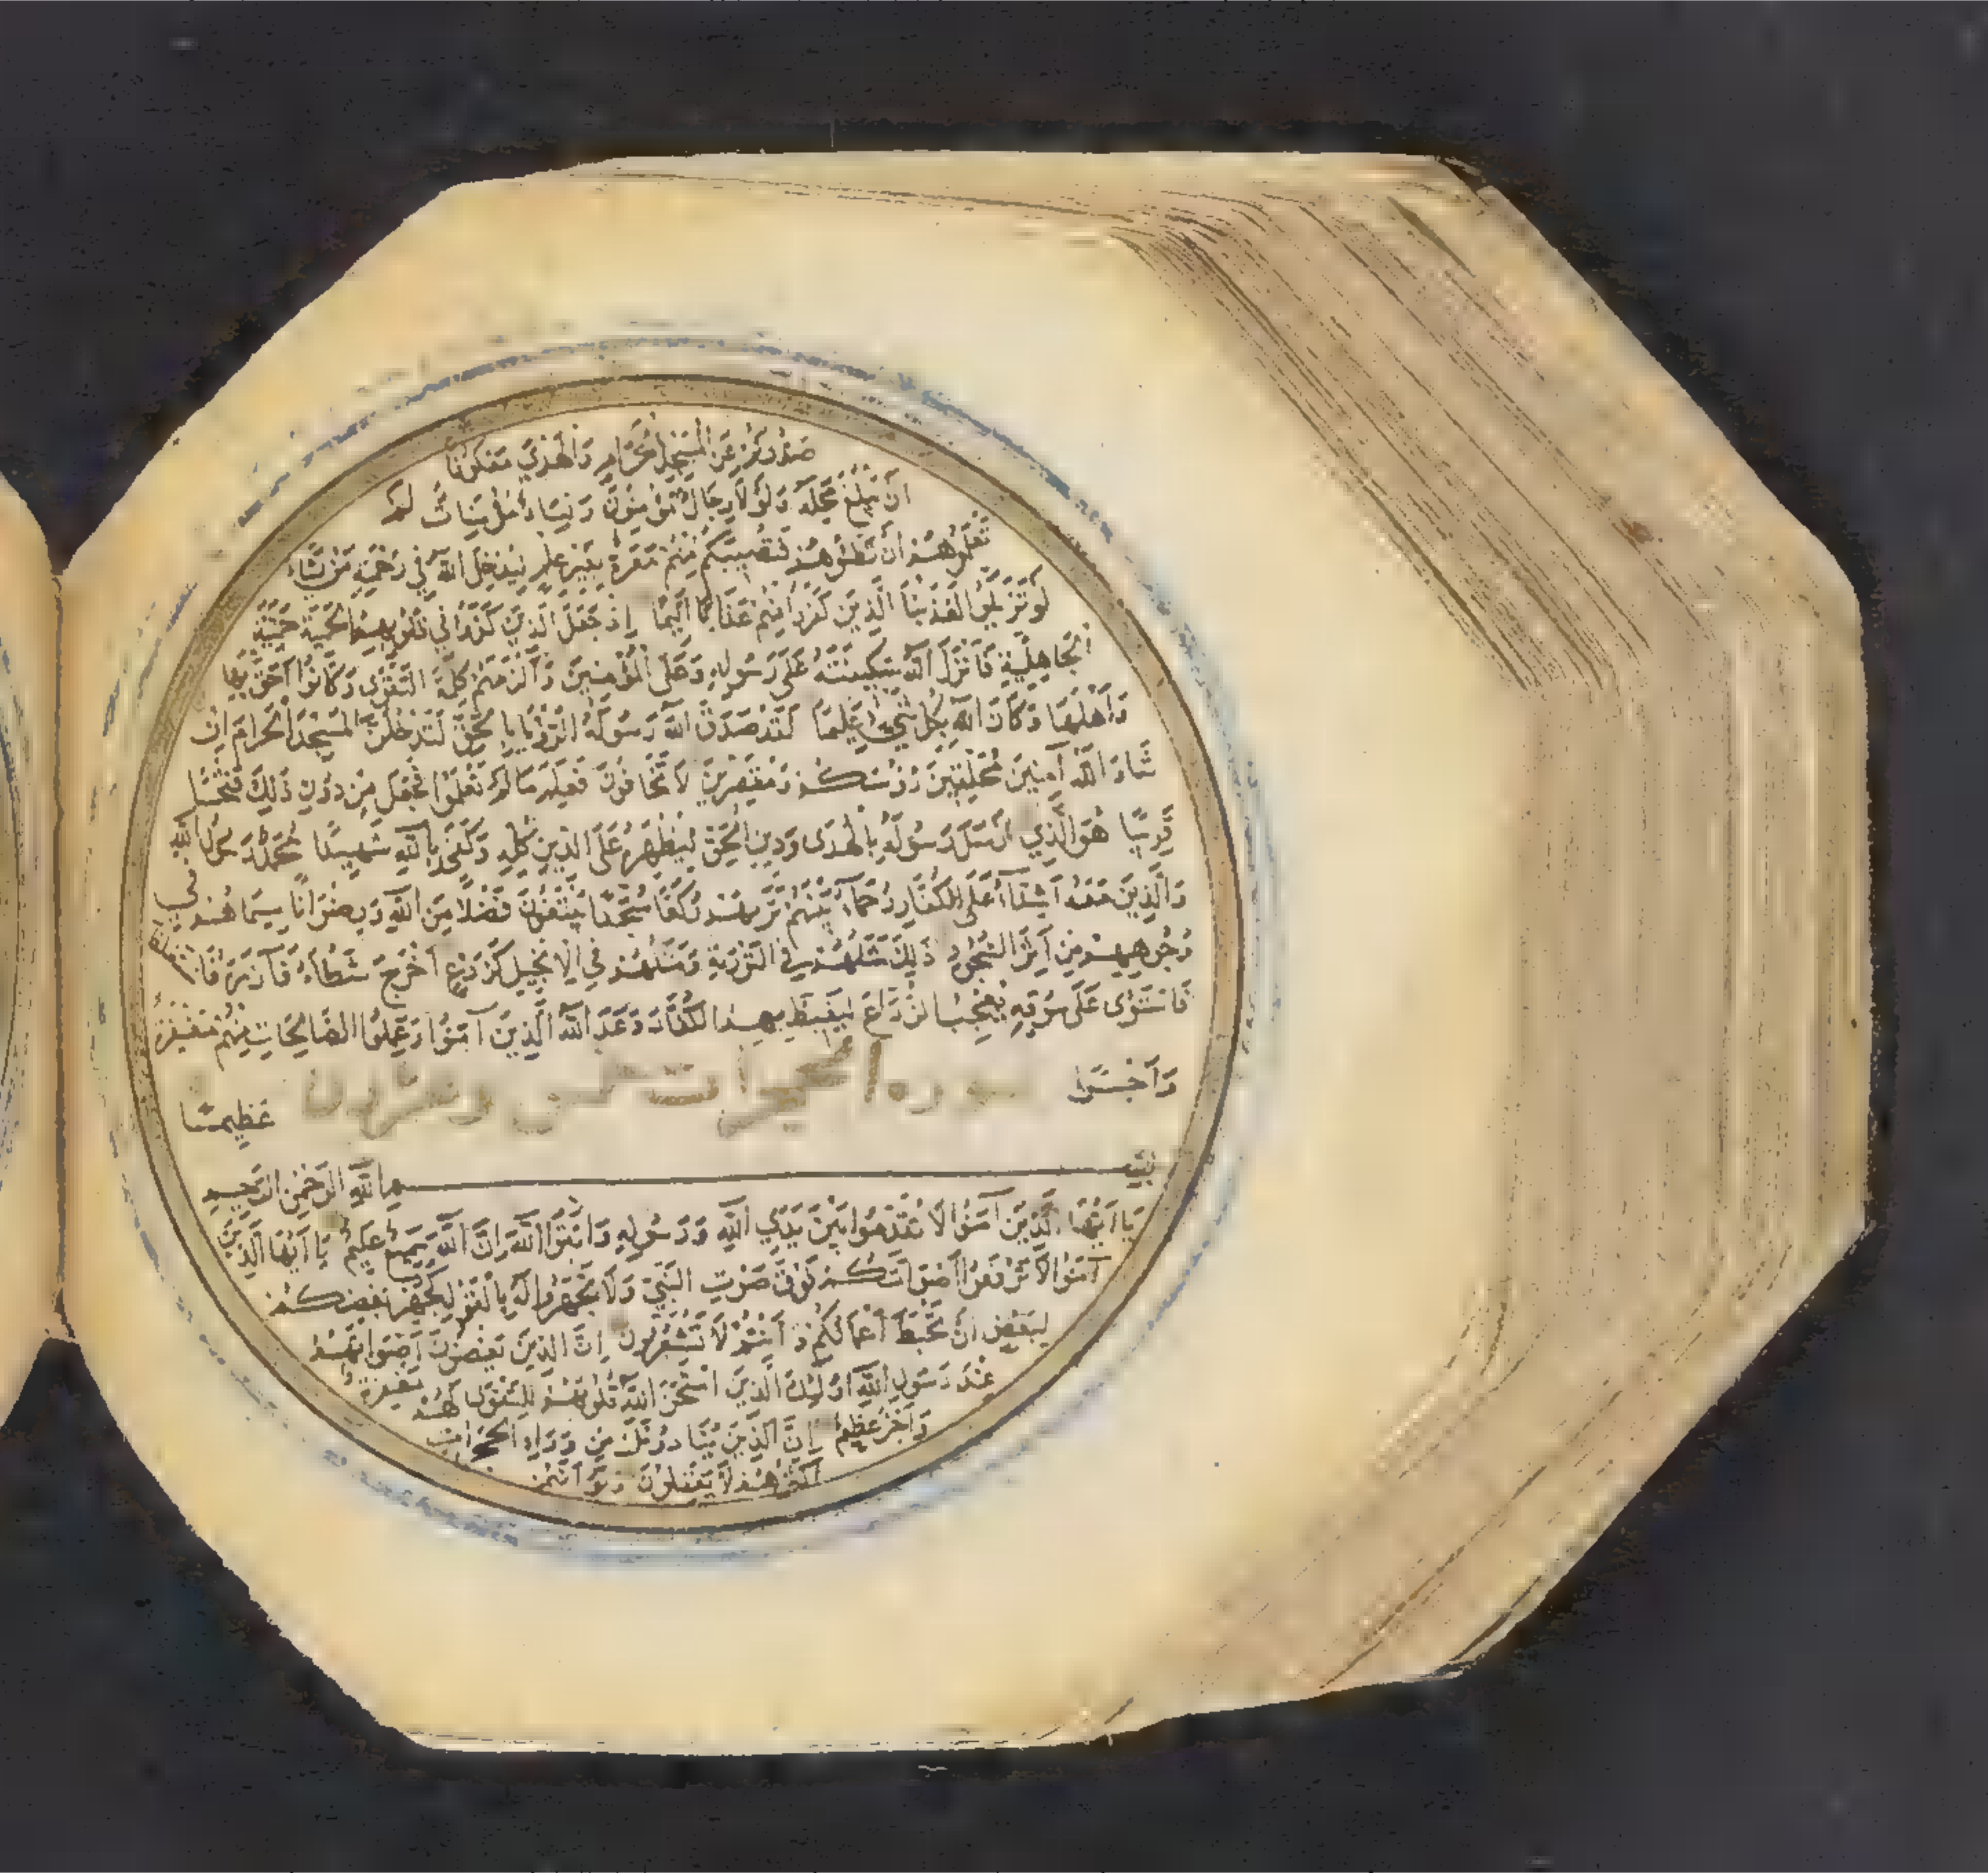 صدوكم عن المسجد الحرام والهدي معكوفا
ان يبلغ محله ولولا رجال مؤمنون ونساء مؤمنات لم
تعلموهم ان تطئوهم فتصيبكم منهم معرة بغير علم ليدخل الله في رحمته من يشاء
لو تزيلوا لعذبنا الذين كفروا منهم عذابا اليما اذ جعل الذين كفروا في قلوبهم الحمية حمية
الجاهلية فانزل الله سكينته على رسوله وعلى المؤمنين والزمهم كلمة التقوى وكانوا احق بها
واهلها وكان الله بكل شيء عليما لقد صدق الله رسوله الرؤيا بالحق لتدخلن المسجد الحرام ان
شاء الله آمنين محلقين رؤسكم ومقصرين لا تخافون فعلم ما لم تعلموا فجعل من دون ذلك فتحا
قريبا هو الذي ارسل رسوله بالهدى ودين الحق ليظهره على الدين كله وكفى بالله شهيدا محمد رسول الله
والذين معه اشداء على الكفار رحماء بينهم تريهم ركعا سجدا يبتغون فضلا من الله ورضوانا سيماهم في
وجوههم من اثر السجود ذلك مثلهم في التورية ومثلهم في الانجيل كزرع اخرج شطأه فآزره فاستغلظ
فاستوى على سوقه يعجب الزراع ليغيظ بهم الكفار وعد الله الذين آمنوا وعملوا الصالحات منهم مغفرة
واجرا سورة الحجرات وعشرون عظيما
بسم الله الرحمن الرحيم
يا ايها الذين آمنوا لا تقدموا بين يدي الله ورسوله واتقوا الله ان الله سميع عليم يا ايها الذين
آمنوا لا ترفعوا اصواتكم فوق صوت النبي ولا تجهروا له بالقول كجهر بعضكم
لبعض ان تحبط اعمالكم وانتم لا تشعرون ان الذين يغضون اصواتهم
عند رسول الله اولئك الذين امتحن الله قلوبهم للتقوى لهم مغفرة
واجر عظيم ان الذين ينادونك من وراء الحجرات
اكثرهم لا يعقلون ولو انهم